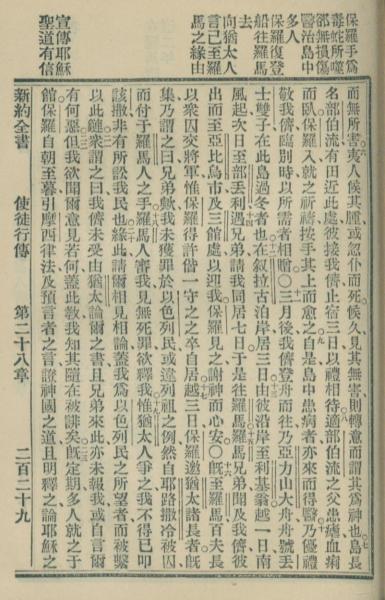 保羅手爲
毒蛇所噬
卻無損傷
醫治島中
多人
保羅復登
船往羅馬
去
向猶太人
言已至羅
馬之緣由
宣傳耶穌
聖道有信
而無所害夷人候其腫或忽仆而死候久見其無害則轉意而謂其爲神也島長
名部伯流有田近此處彼接我儕止宿三日以禮相待適部伯流之父患瘧血痢
而臥保羅入就之祈禱按手其上而愈之自是島中患病者亦來而得醫乃優禮
敬我儕臨別時以所需者相贈〇三月後我儕登舟而往乃亞力山大舟舟號丟
士雙子在此島過冬者也在叙拉古泊岸居三日由彼沿岸至利基翁越一日南
風起次日至部丟利遇兄弟請我同居七日于是往羅馬羅馬兄弟聞及我儕彼
出而至亞比烏市及三館處以迎我保羅見之謝神而心安〇旣至羅馬百夫長
以衆囚交將軍惟保羅得許偕一守之之卒自居越三日保羅邀猶太諸長者旣
集乃謂之曰兄弟歟我未獲罪於以色列民或違列祖之例然自耶路撒冷被囚
而付于羅馬人之手羅馬人審我見無死罪欲釋我惟猶太人爭之我不得已叩
該撒非有所訟我民也緣此請爾相見相論蓋我爲以色列民之所望者而被繫
以此鏈衆謂之曰我儕未受由猶太論爾之書且兄弟來此亦未報我或自言爾
有何惡但我欲聞爾意見若何蓋此敎我知其隨在被誹矣旣定期多人就之于
館保羅自朝至暮引摩西律法及預言者之言證神國之道且明釋之論耶穌之
新約全書 使徒行傳 第二十八章 二百二十九